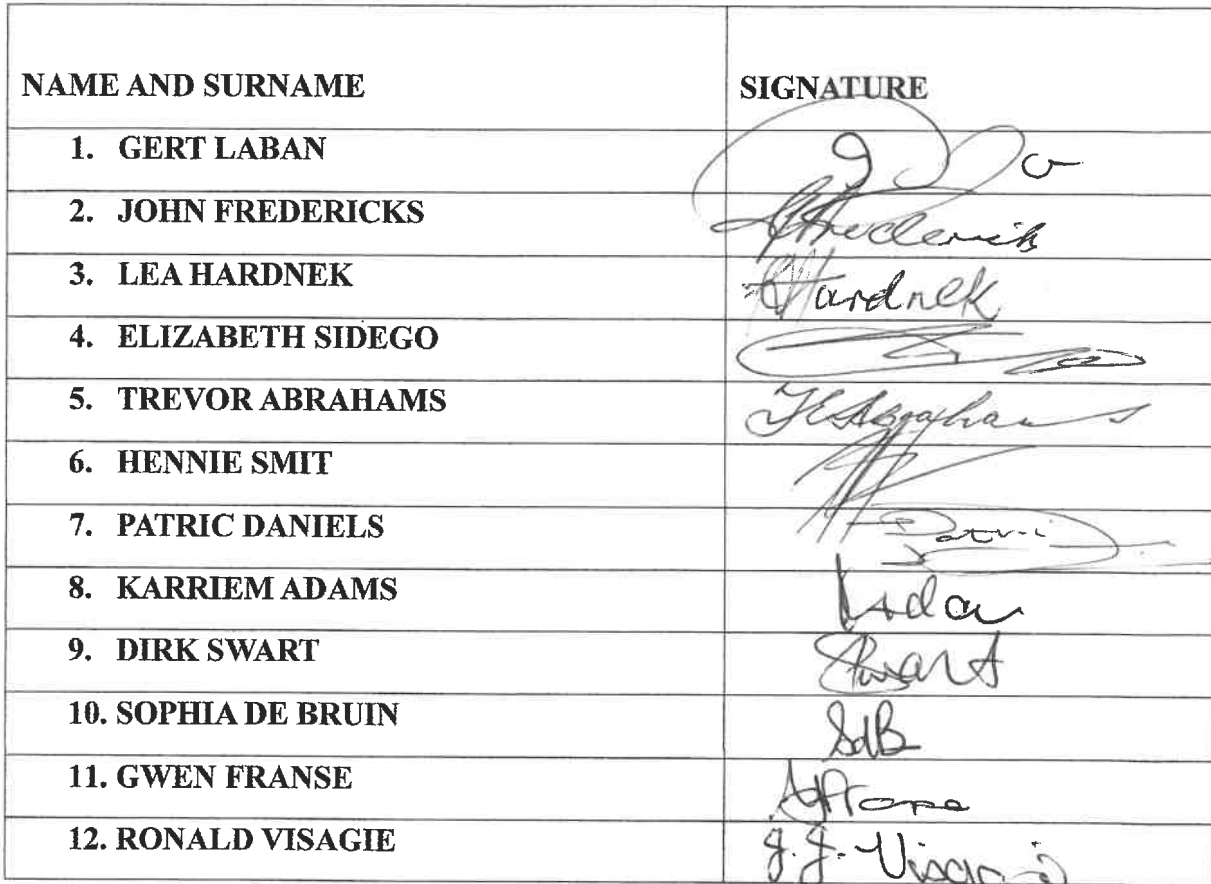 NAME AND SURNAME SIGNATURE
1. GERT LABAN
2. JOHN FREDERICKS
3. LEA HARDNEK Hardnek
4. ELIZABETH SIDEGO
5. TREVOR ABRAHAMS
6. HENNIE SMIT
7. PATRIC DANIELS
8. KARRIEM ADAMS
9. DIRK SWART Swart
10. SOPHIA DE BRUIN SdB
11. GWEN FRANSE
12. RONALD VISAGIE J.J. Visagie